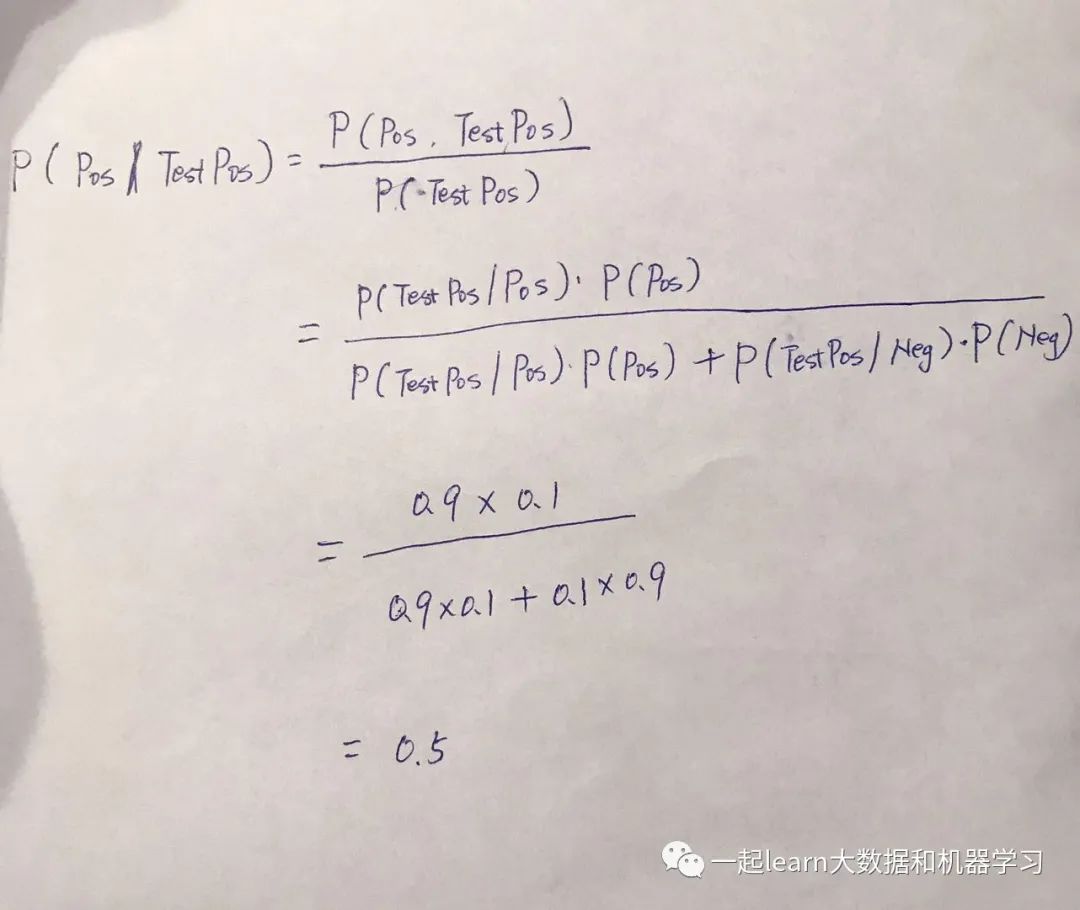 P(Pos, TestPos)
P(Pos / TestPos) =
P(TestPos)
P(TestPos/Pos) · P(Pos)
=
P(TestPos/Pos) · P(Pos) + P(TestPos/Neg) · P(Neg)
0.9 × 0.1
=
0.9×0.1 + 0.1×0.9
= 0.5
一起learn大数据和机器学习